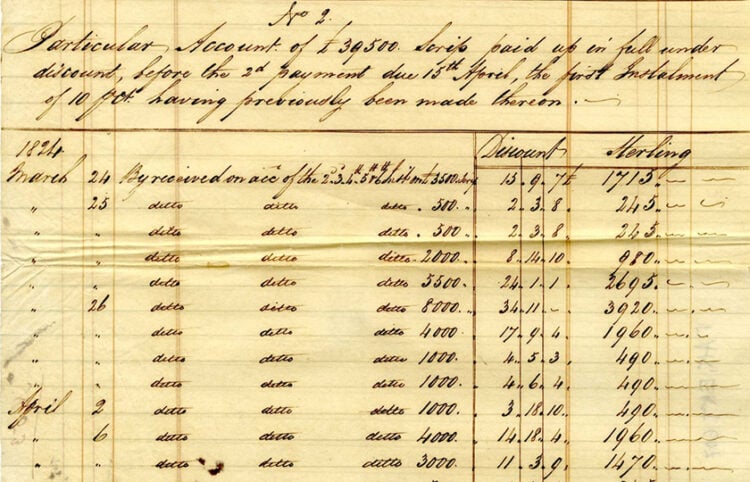 No 2.
Particular Account of £39500. Scrip paid up in full under
discount, before the 2d payment due 15th April, the first Instalment
of 10 pCt. having previously been made thereon.
1824 Discount Sterling
March 24 By received on acc of the 2d 3d 4th 5th & 6th on £3500 Scrip 15 . 9 . 7½ 1715 " - -
" 25 ditto ditto ditto . 500 . " 2 . 3 . 8 245 " - -
" " ditto ditto ditto . 500 . " 2 . 3 . 8 245 " - -
" " ditto ditto ditto . 2000 . " 8 . 14 . 10 980 " - -
" " ditto ditto ditto 5500 . " 24 . 1 . 1 2695 " - -
" 26 ditto ditto ditto 8000 . " 34 . 11 - 3920 " - -
" " ditto ditto ditto 4000 . 17 . 9 . 4 1960 " - -
" " ditto ditto ditto 1000 . 4 . 5 . 3 490 " - -
" " ditto ditto ditto 1000 . 4 . 6 . 4 490 " - -
April 2 ditto ditto ditto 1000 . 3 . 18 . 10 490 " - -
" 6 ditto ditto ditto 4000 . 14 . 18 . 4 1960 " - -
" " ditto ditto ditto 3000 . 11 . 3 . 9 1470 " - -